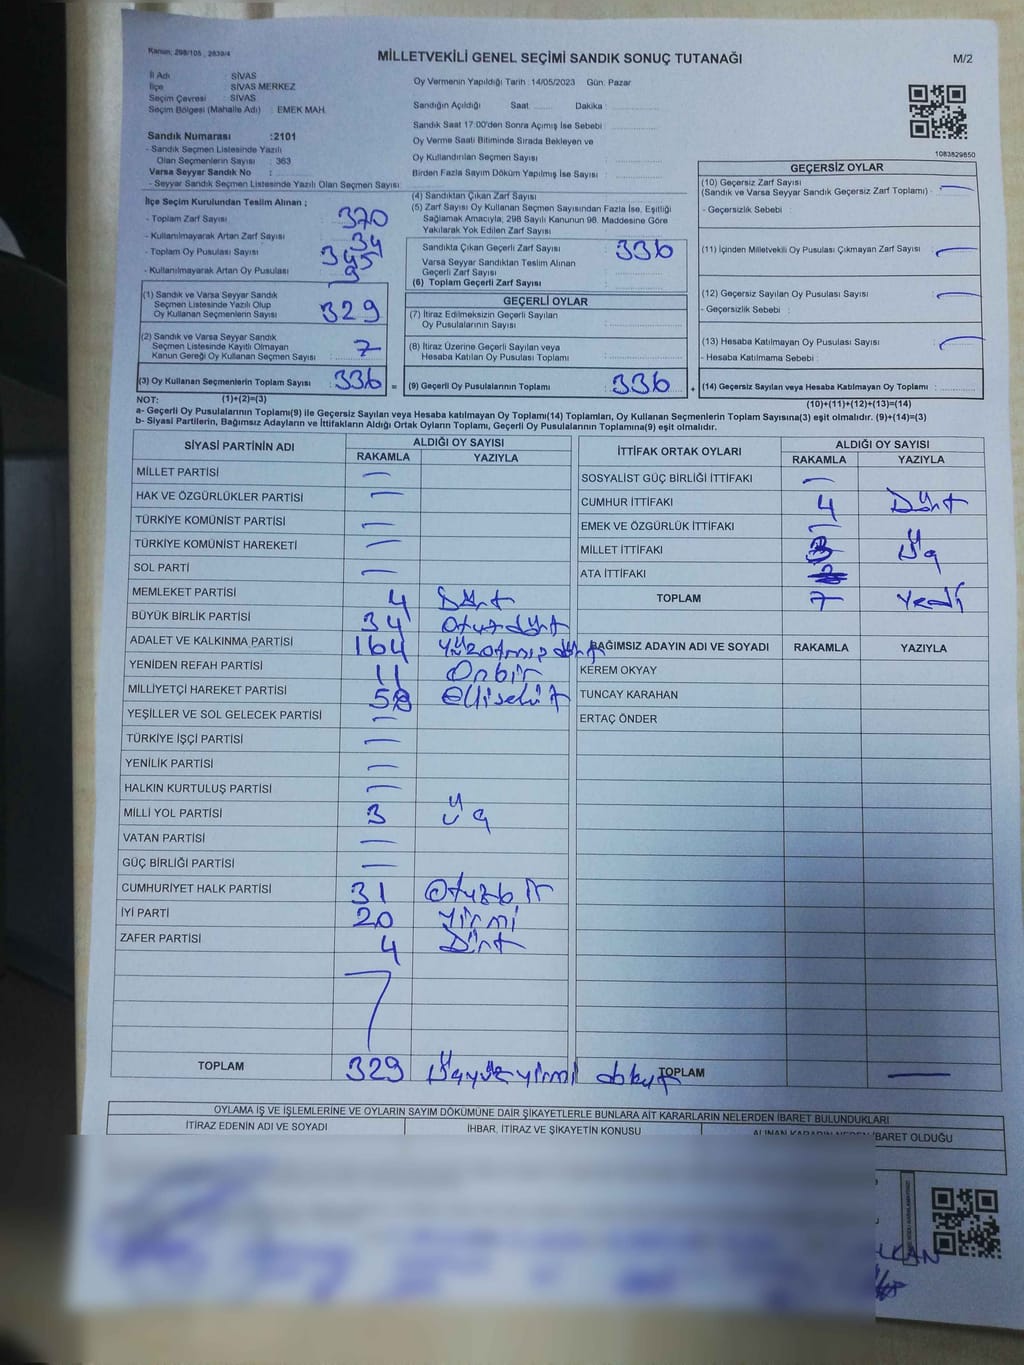 Kanun: 298/105 , 2839/4
MİLLETVEKİLİ GENEL SEÇİMİ SANDIK SONUÇ TUTANAĞI
M/2
İl Adı : SİVAS
İlçe : SİVAS MERKEZ
Seçim Çevresi : SİVAS
Seçim Bölgesi (Mahalle Adı) : EMEK MAH.
Sandık Numarası :2101
- Sandık Seçmen Listesinde Yazılı
Olan Seçmenlerin Sayısı : 363
Varsa Seyyar Sandık No :
- Seyyar Sandık Seçmen Listesinde Yazılı Olan Seçmen Sayısı:
Oy Vermenin Yapıldığı Tarih : 14/05/2023 Gün: Pazar
Sandığın Açıldığı Saat ........ Dakika : ..............
Sandık Saat 17:00'den Sonra Açımış İse Sebebi : ..............
Oy Verme Saati Bitiminde Sırada Bekleyen ve
Oy Kullandırılan Seçmen Sayısı : ..............
Birden Fazla Sayım Döküm Yapılmış İse Sayısı : ..............
1083829850
İlçe Seçim Kurulundan Teslim Alınan ;
- Toplam Zarf Sayısı : 370
- Kullanılmayarak Artan Zarf Sayısı : 34
- Toplam Oy Pusulası Sayısı : 345
- Kullanılmayarak Artan Oy Pusulası : 9
(1) Sandık ve Varsa Seyyar Sandık
Seçmen Listesinde Yazılı Olup
Oy Kullanan Seçmenlerin Sayısı : 329
(2) Sandık ve Varsa Seyyar Sandık
Seçmen Listesinde Kayıtlı Olmayan
Kanun Gereği Oy Kullanan Seçmen Sayısı : 7
(3) Oy Kullanan Seçmenlerin Toplam Sayısı : 336 =
(4) Sandıktan Çıkan Zarf Sayısı
(5) Zarf Sayısı Oy Kullanan Seçmen Sayısından Fazla İse, Eşitliği
Sağlamak Amacıyla, 298 Sayılı Kanunun 98. Maddesine Göre
Yakılarak Yok Edilen Zarf Sayısı :
Sandıkta Çıkan Geçerli Zarf Sayısı : 336
Varsa Seyyar Sandıktan Teslim Alınan
Geçerli Zarf Sayısı :
(6) Toplam Geçerli Zarf Sayısı :
GEÇERLİ OYLAR
(7) İtiraz Edilmeksizin Geçerli Sayılan
Oy Pusulalarının Sayısı :
(8) İtiraz Üzerine Geçerli Sayılan veya
Hesaba Katılan Oy Pusulası Toplamı :
(9) Geçerli Oy Pusulalarının Toplamı : 336 +
GEÇERSİZ OYLAR
(10) Geçersiz Zarf Sayısı
(Sandık ve Varsa Seyyar Sandık Geçersiz Zarf Toplamı) : —
- Geçersizlik Sebebi :
(11) İçinden Milletvekili Oy Pusulası Çıkmayan Zarf Sayısı : —
(12) Geçersiz Sayılan Oy Pusulası Sayısı : —
- Geçersizlik Sebebi :
(13) Hesaba Katılmayan Oy Pusulası Sayısı : —
- Hesaba Katılmama Sebebi :
(14) Geçersiz Sayılan veya Hesaba Katılmayan Oy Toplamı :
NOT: (1)+(2)=(3)
(10)+(11)+(12)+(13)=(14)
a- Geçerli Oy Pusulalarının Toplamı(9) ile Geçersiz Sayılan veya Hesaba katılmayan Oy Toplamı(14) Toplamları, Oy Kullanan Seçmenlerin Toplam Sayısına(3) eşit olmalıdır. (9)+(14)=(3)
b- Siyasi Partilerin, Bağımsız Adayların ve İttifakların Aldığı Ortak Oyların Toplamı, Geçerli Oy Pusulalarının Toplamına(9) eşit olmalıdır.
SİYASİ PARTİNİN ADI ALDIĞI OY SAYISI
RAKAMLA YAZIYLA
MİLLET PARTİSİ —
HAK VE ÖZGÜRLÜKLER PARTİSİ —
TÜRKİYE KOMÜNİST PARTİSİ —
TÜRKİYE KOMÜNİST HAREKETİ —
SOL PARTİ —
MEMLEKET PARTİSİ 4 Dört
BÜYÜK BİRLİK PARTİSİ 34 Otuzdört
ADALET VE KALKINMA PARTİSİ 164 Yüzatmışdört
YENİDEN REFAH PARTİSİ 11 Onbir
MİLLİYETÇİ HAREKET PARTİSİ 58 Ellisekiz
YEŞİLLER VE SOL GELECEK PARTİSİ —
TÜRKİYE İŞÇİ PARTİSİ —
YENİLİK PARTİSİ —
HALKIN KURTULUŞ PARTİSİ —
MİLLİ YOL PARTİSİ 3 Üç
VATAN PARTİSİ —
GÜÇ BİRLİĞİ PARTİSİ —
CUMHURİYET HALK PARTİSİ 31 Otuzbir
İYİ PARTİ 20 Yirmi
ZAFER PARTİSİ 4 Dört
TOPLAM 329 Üçyüzyirmi dokuz
İTTİFAK ORTAK OYLARI ALDIĞI OY SAYISI
RAKAMLA YAZIYLA
SOSYALİST GÜÇ BİRLİĞİ İTTİFAKI —
CUMHUR İTTİFAKI 4 Dört
EMEK VE ÖZGÜRLÜK İTTİFAKI —
MİLLET İTTİFAKI 3 Üç
ATA İTTİFAKI
TOPLAM 7 Yedi
BAĞIMSIZ ADAYIN ADI VE SOYADI RAKAMLA YAZIYLA
KEREM OKYAY
TUNCAY KARAHAN
ERTAÇ ÖNDER
TOPLAM —
OYLAMA İŞ VE İŞLEMLERİNE VE OYLARIN SAYIM DÖKÜMÜNE DAİR ŞİKAYETLERLE BUNLARA AİT KARARLARIN NELERDEN İBARET BULUNDUKLARI
İTİRAZ EDENİN ADI VE SOYADI İHBAR, İTİRAZ VE ŞİKAYETİN KONUSU ALINAN KARARIN NEDEN İBARET OLDUĞU